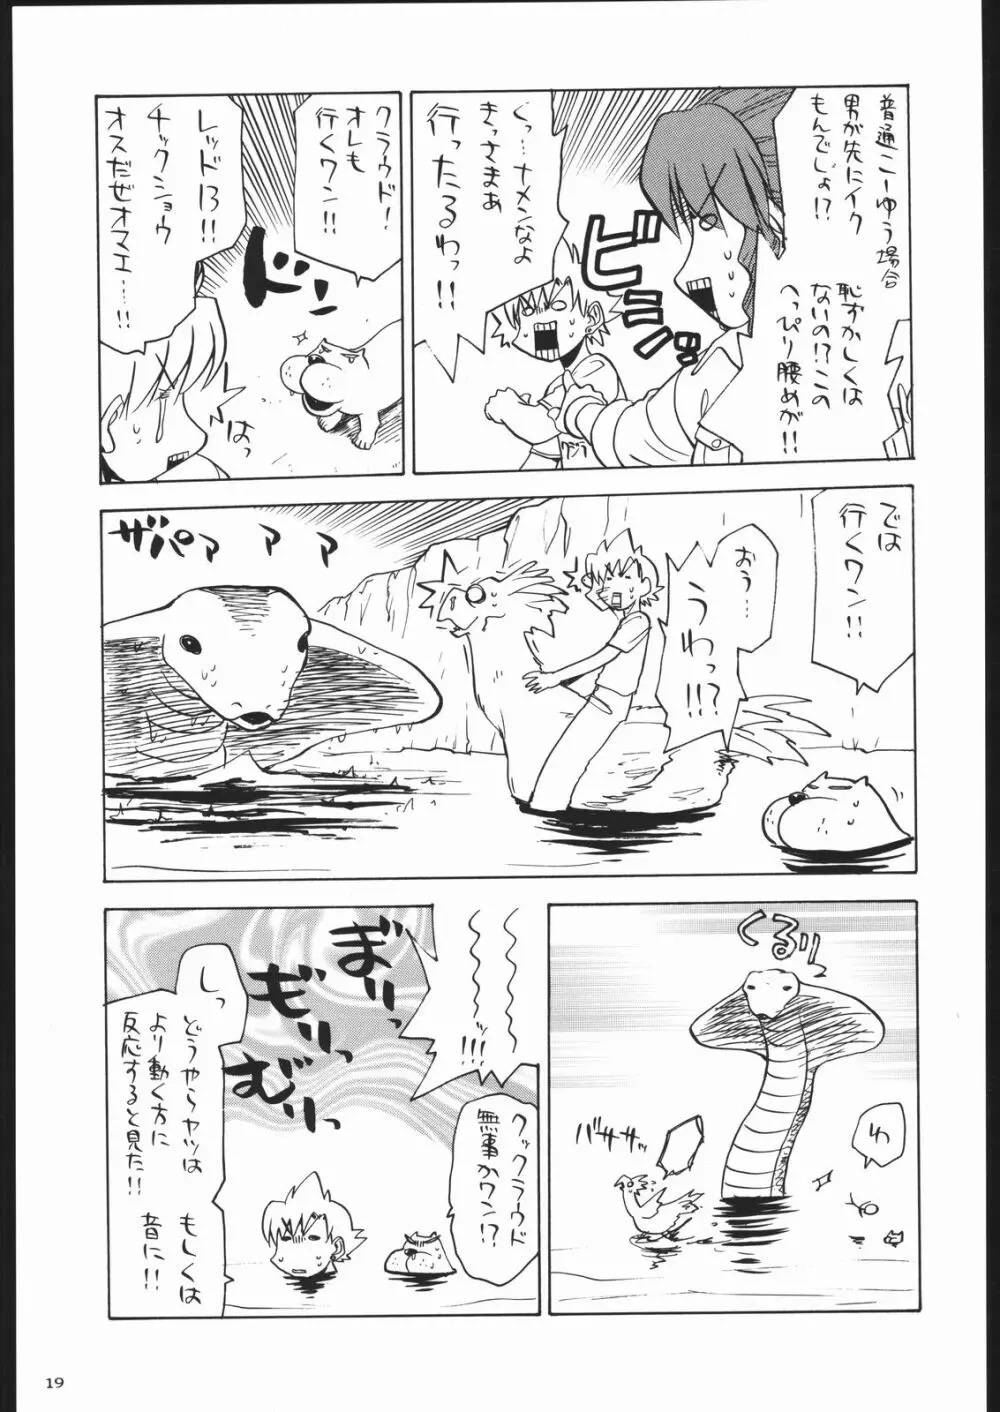 普通こーゆう場合
男が先にイク
もんでしょ!?
恥ずかしくは
ないの!?この
へっぴり腰めが!!
ビシビシッ
くっ…ナメンなよ
きっさまぁ
行ったるわっ!!
クラウド!
オレも
行くワン!!
ドン
レッド13!!
チックショウ
オスだぜオマエ…!!
はっ
では
行くワン!!
おぅ…
うわっ!!?
ザパァァァ
くるりッ
バササッ
わ
ぎりっ
もりっ
むりっ
〜〜〜〜!!!
クックラウド
無事かワン!?
しっ
どうやらヤツは
より動く方に
反応すると見た!!
もしくは
音に!!
19